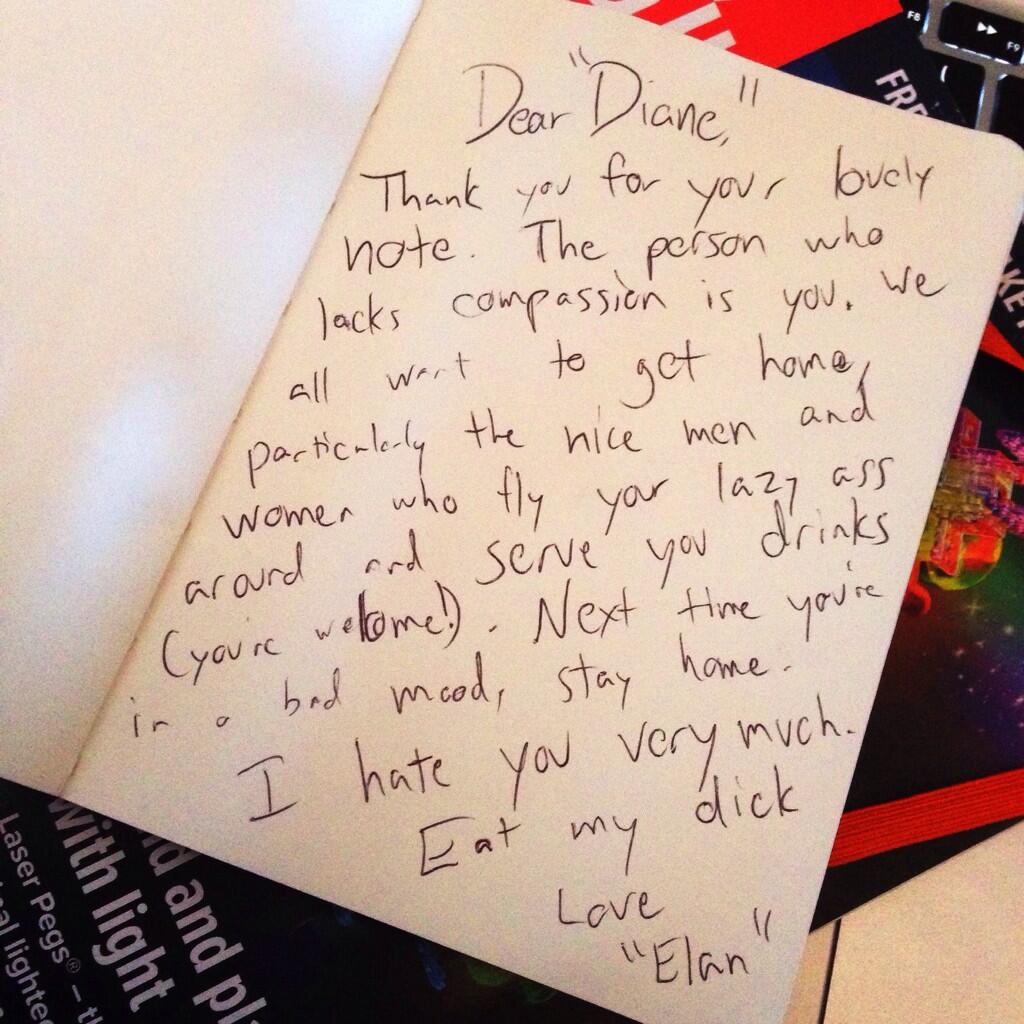 Dear "Diane,"
Thank you for your lovely
note. The person who
lacks compassion is you. We
all want to get home,
particularly the nice men and
women who fly your lazy ass
around and serve you drinks
(you're welcome!). Next time you're
in a bad mood, stay home.
I hate you very much.
Eat my dick
Love
"Elan"
F8
F9
FRE
KET
d and pl
with light
Laser Pegs® – th
al lighte